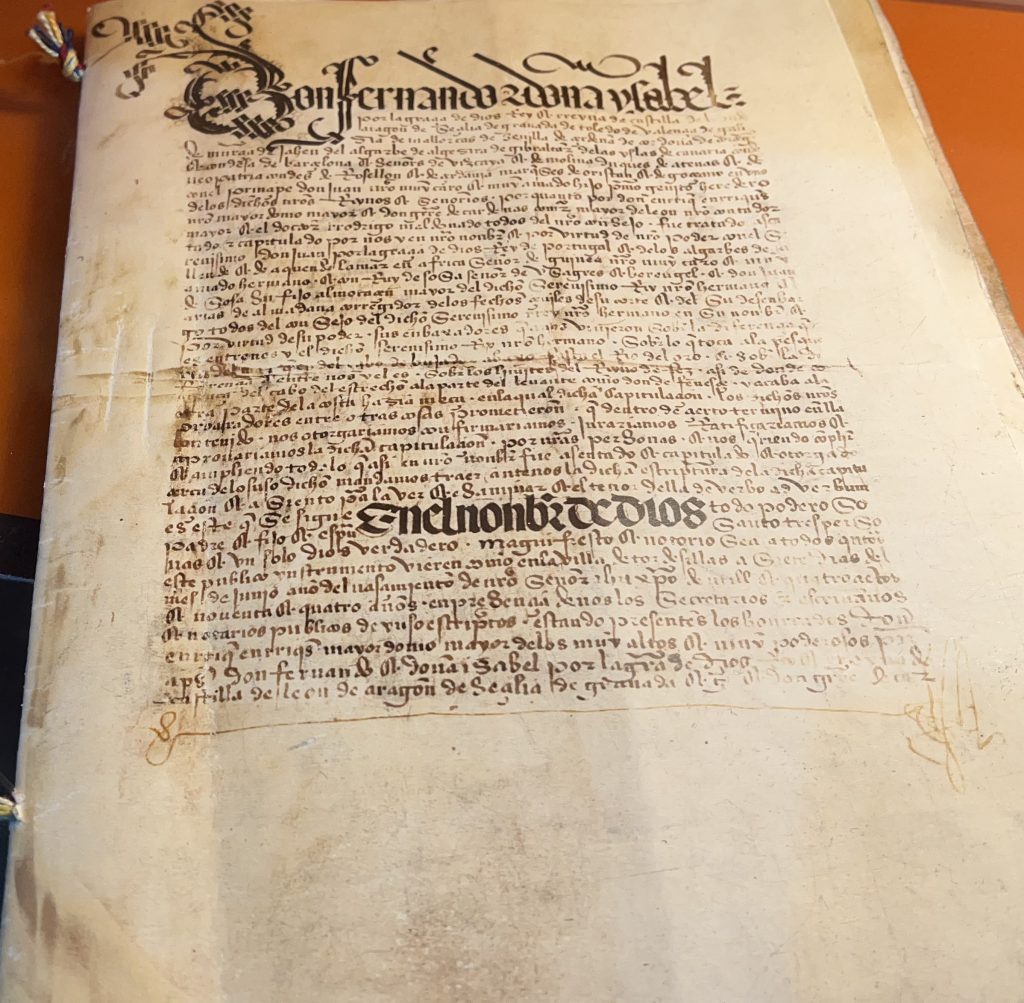 Don fernando & dona ysabel
por la graçia de dios Rey & Reyna de castilla de leon
aragon de seçilia de granada de toledo de valençia de galizia
de mallorcas de seuilla de çerdeña de cordoua de
de murçia de Jahen del algarbe de algezira de gibraltar de las yslas de canaria
condesa de barçelona & señores de vizcaya & de molina duques de atenas & de
neopatria condes de Rosellon & de çerdania marqueses de oristan & de goçiano en vno
con el prinçipe don Juan nro muy caro & muy amado hijo primo genito heredero
de los dichos nros Reynos & señorios. por quanto por don enrriq enrriqs
nro mayordomo mayor & don gtrre de cardenas comisr mayor de leon nro contador
mayor & el doctor Rodrigo mel donado todos del nro consejo. fue tratado asen
tado & capitulado por nos y en nro nonbre & por virtud de nro poder con el se
renisimo don Juan por la graçia de dios Rey de portugal & de los algarbes de a
llende & de aquende la mar en africa señor de guinea nro muy caro & muy
amado hermano. & con Ruy de sosa señor de vsagres & berengel. & don Juan
de sosa su fijo almotaçen mayor del dicho serenisimo Rey nro hermano &
arias de almadana corregidor de los fechos çeuiles de su corte & del su desenbar
go todos del consejo del dicho serenisimo Rey nro hermano en su nonbre &
por virtud de su poder. sus enbaxadores que a nos vinieron sobre la diferençia q
es entre nos y el dicho serenisimo Rey nro hermano. sobre lo que toca a la pesqueria
fasta el Rio del oro. & sobre la di
ferençia q entre nos y el es. sobre los limites del Reyno de fez. asi de donde co
mença del cabo del estrecho a la parte del leuante como donde fenesçe. y acaba a la
otra parte de la costa en la qual dicha capitulaçion. los dichos nros
procuradores entre otras cosas prometieron. q dentro de çierto termino en ella
contenido. nos otorgariamos confirmariamos. jurariamos Ratificariamos &
aprouariamos la dicha capitulaçion. por nras personas. & nos q riendo conplir
& cunpliendo todo lo q asi en nro nonbre fue asentado & capitulado & otorgado
çerca de lo suso dicho mandamos traer ante nos la dicha escriptura de la dicha capitu
laçion & asiento para la ver & esaminar & el tenor della de verbo ad verbum
es este q se sigue En el nonbre de dios todo poderoso
padre & fijo & espu santo tres perso
nas & vn solo dios verdadero. magnifiesto & notorio sea a todos quantos
este publico ynstrumento vieren como en la villa de tordesillas a siete dias del
mes de junio año del nasçimiento de nro señor ihu xpo de mill & quatroçientos
& nouenta & quatro años. en presençia de nos los secretarios & escriuanos
& notarios publicos de yuso escriptos. estando presentes los honrrados don
enrriq enrriqs mayordomo mayor de los muy altos & muy poderosos prin
çipes don fernando & dona ysabel por la graçia de dios Rey & Reyna de
castilla de leon de aragon de seçilia de granada & & don gtrre de car